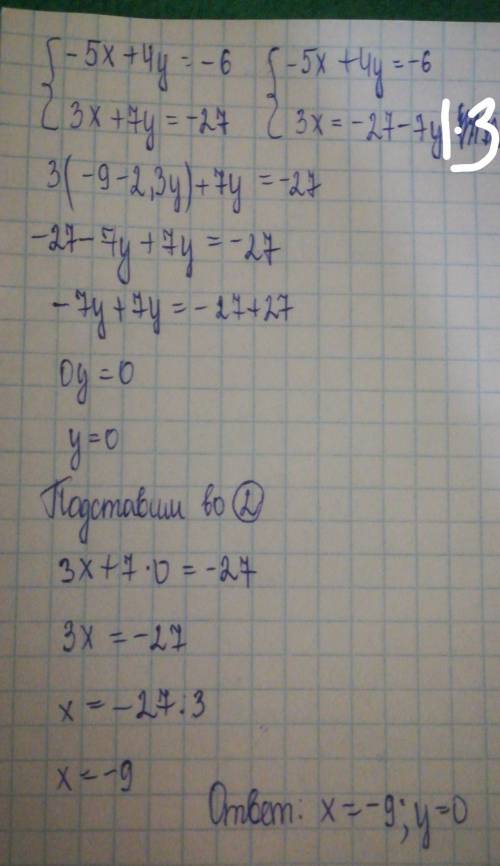 -5x+4y=-6 -5x+4y=-6
3x+7y=-27 3x=-27-7y 1:3
3(-9-2,3y)+7y=-27
-27-7y+7y=-27
-7y+7y=-27+27
0y=0
y=0
Подставим во 2
3x+7·0=-27
3x=-27
x=-27:3
x=-9
Ответ: x=-9; y=0